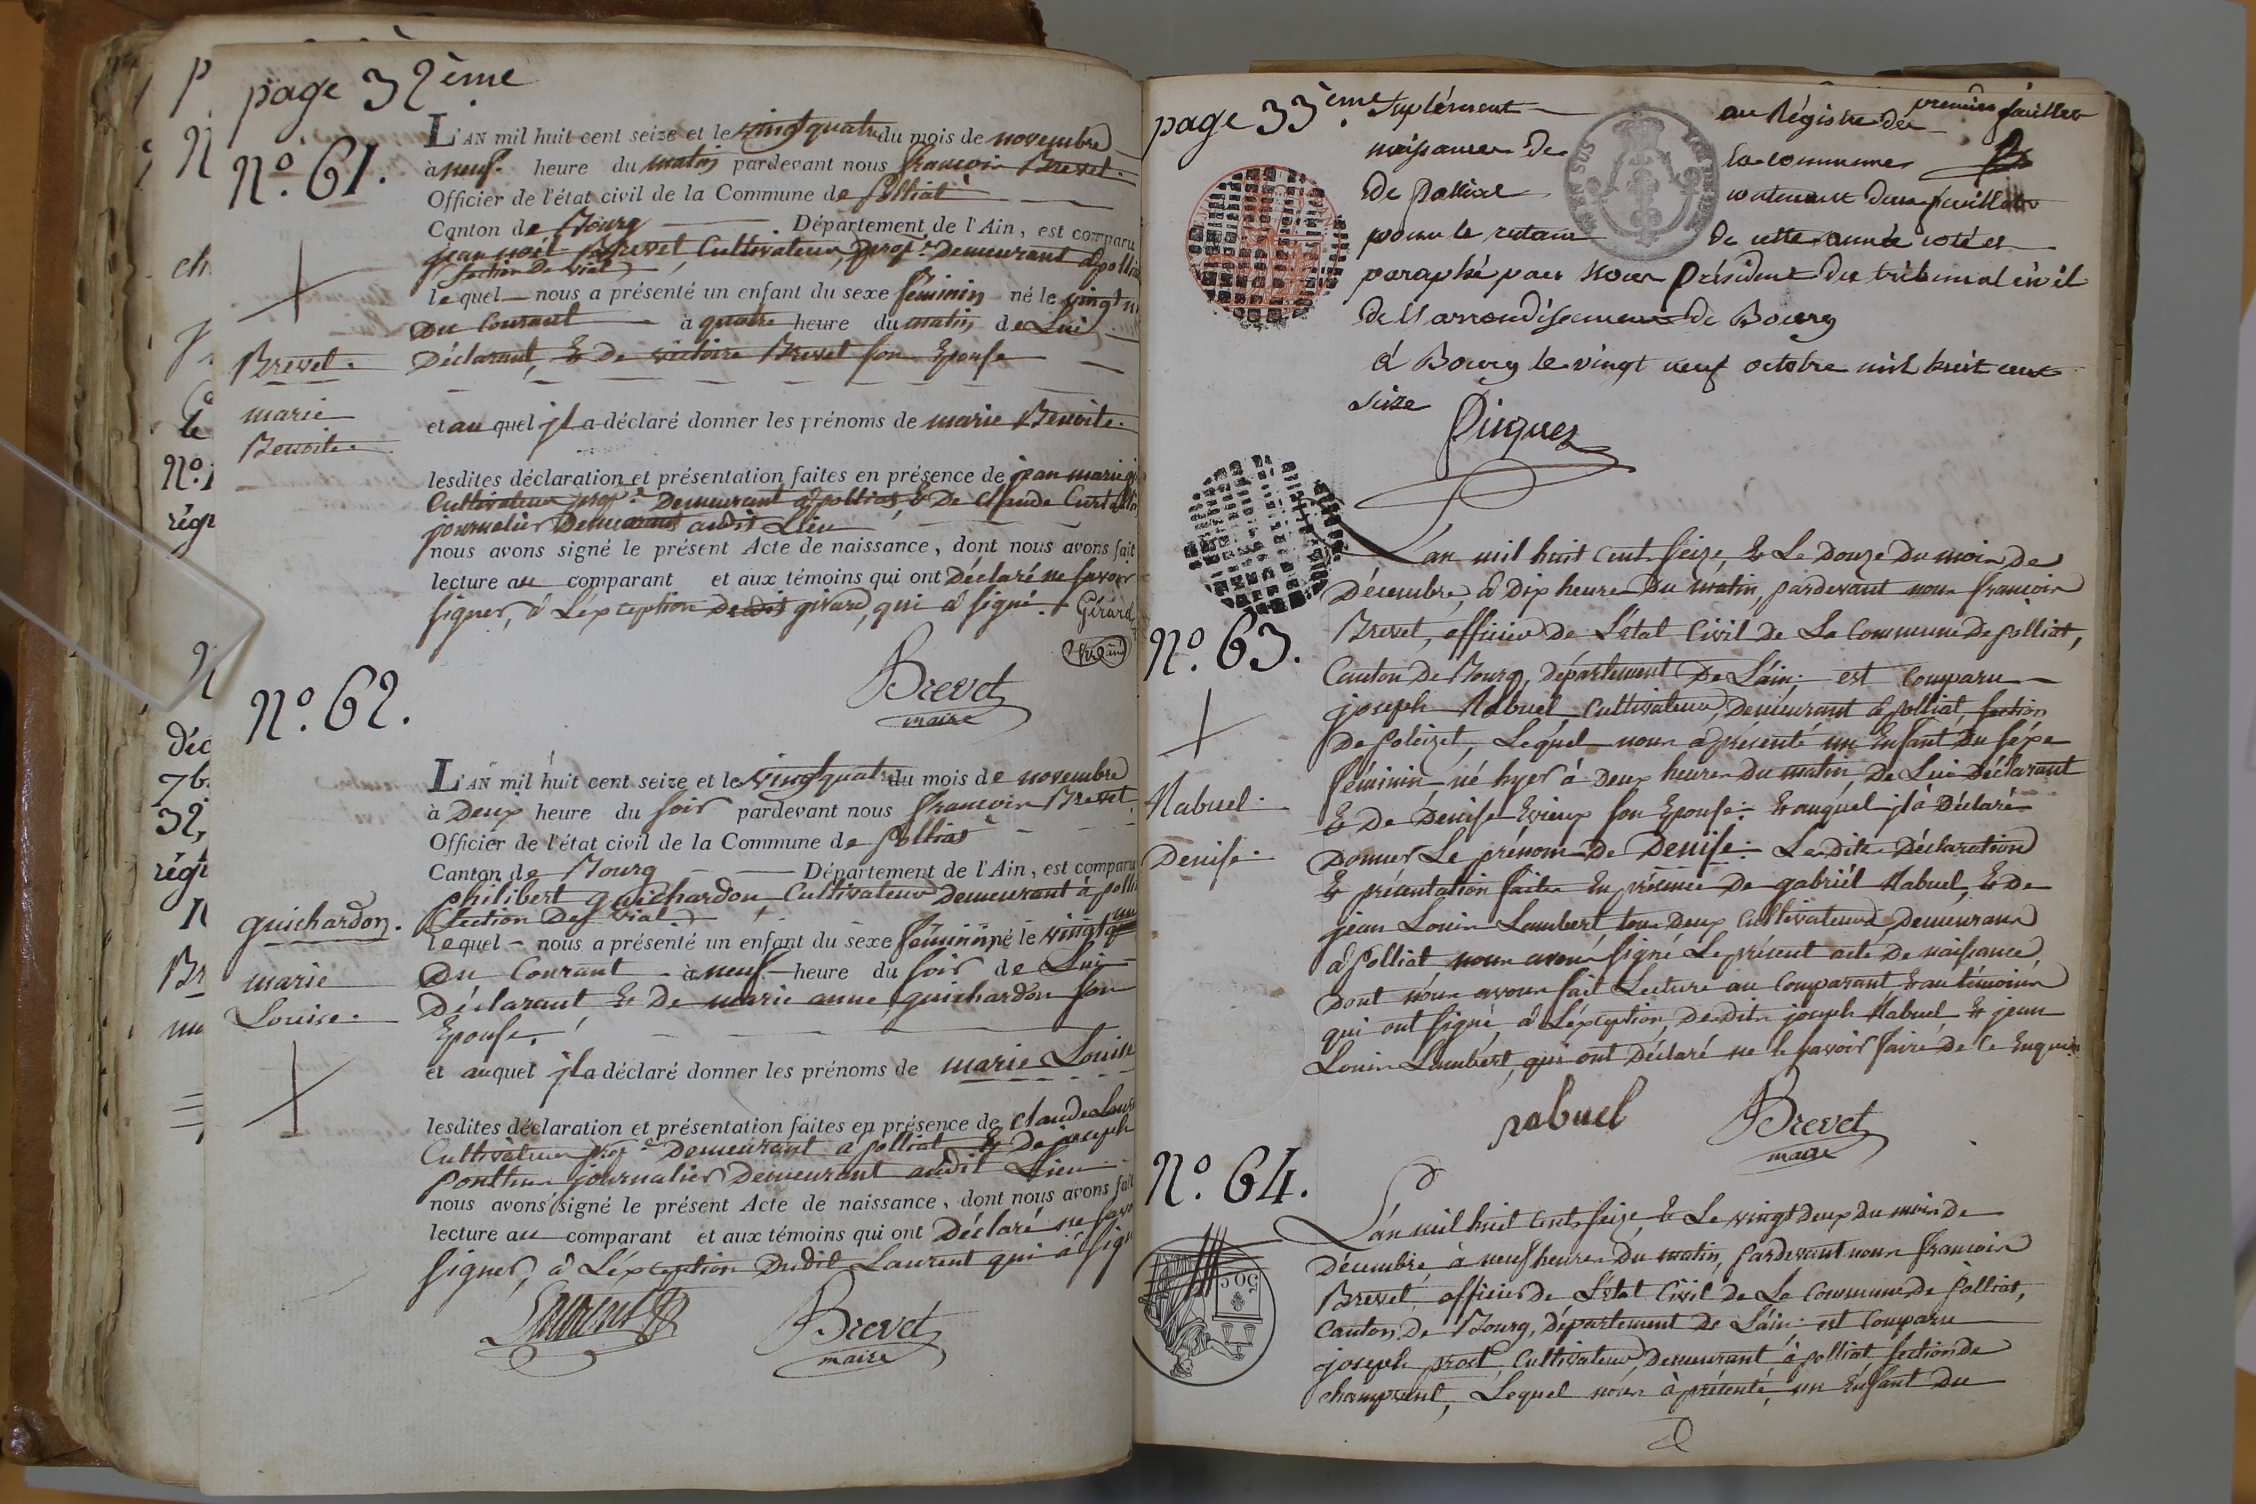 page 32ème
N.° 61.
L'AN mil huit cent seize et le vingt quatre du mois de novembre
à neuf heure du matin pardevant nous françois Brevet
Officier de l'état civil de la Commune de polliat
Canton de Bourg Département de l'Ain, est comparu
jean noël Brevet, Cultivateur, prop.re Demeurant à polliat
section De vial
lequel nous a présenté un enfant du sexe féminin né le vingt
Du Courant à quatre heure du matin de Lui
Brevet.
Déclarant, & De victoire Brevet son Epouse
marie
Benoite.
et au quel jl a déclaré donner les prénoms de marie Benoite.
lesdites déclaration et présentation faites en présence de jean marie
Cultivateur prop.re Demeurant à polliat, & De Claude Curt
journalier Demeurant audit Lieu
nous avons signé le présent Acte de naissance, dont nous avons fait
lecture au comparant et aux témoins qui ont Déclaré ne savoir
signer, à L'exception Dudit girard, qui a signé. Gérard
Brevet
maire
N.° 62.
L'AN mil huit cent seize et le vingt quatre du mois de novembre
à Deux heure du soir pardevant nous françois Brevet
Officier de l'état civil de la Commune de polliat
Canton de Bourg Département de l'Ain, est comparu
philibert guichardon Cultivateur Demeurant à polliat
guichardon.
Section Des vial
lequel nous a présenté un enfant du sexe féminin né le vingt un
marie
Du Courant à neuf heure du soir de Lui
Louise.
Déclarant & De marie anne guichardon son
Epouse.
et au quel jl a déclaré donner les prénoms de marie Louise
lesdites déclaration et présentation faites en présence de Claude Laurent
Cultivateur prop.re Demeurant à polliat & De joseph
journalier Demeurant audit Lieu
nous avons signé le présent Acte de naissance, dont nous avons fait
lecture au comparant et aux témoins qui ont Déclaré ne savoir
signer, à L'exception Dudit Laurent qui a signé
Laurent
Brevet
maire
page 33ème
Suplément au Régistre des premier feuillet
naissances de la commune
de Polliat contenant deux feuillets
pour le restant de cette année coté et
paraphé par Nous Président du tribunal civil
de l'arrondissement de Bourg
à Bourg le vingt neuf octobre mil huit cent
seize
Piquet
L'an mil huit Cent Seize, & Le Douze Du mois De
Décembre, à Dix heure Du matin, pardevant nous françois
N.° 63.
Brevet, officier De L'état Civil de La Commune De polliat,
Canton De Bourg, Département De L'ain, est Comparu
joseph Nabuel, Cultivateur, Demeurant à polliat, section
De poleizet, Lequel nous a présenté un Enfant Du sexe
féminin, né hyer à Deux heure Du matin, De Lui Déclarant
Nabuel.
& De Denise Evieux son Epouse. & auquel jl a Déclaré
Denise.
Donner Le prénom De Denise. Lesdites Déclaration
& présentation faites En présence De gabriël Nabuel, & De
jean Louis Lambert, tous Deux Cultivateurs Demeurans
à polliat, nous avons signé Le présent acte De naissance,
Dont nous avons fait Lecture au Comparant & aux témoins
qui ont signé à L'exception Desdits joseph Nabuel & jean
Louis Lambert, qui ont Déclaré ne le savoir faire de ce Enquis
nabuel
Brevet
maire
N.° 64.
L'an mil huit Cent Seize, & Le vingt Deux Du mois De
Décembre à neuf heures Du matin, pardevant nous françois
50 C
Brevet, officier De L'état Civil De La Commune De polliat,
Canton De Bourg, Département De L'ain est Comparu
joseph prost, Cultivateur, Demeurant à polliat section De
champvent, Lequel nous à présenté, un Enfant Du